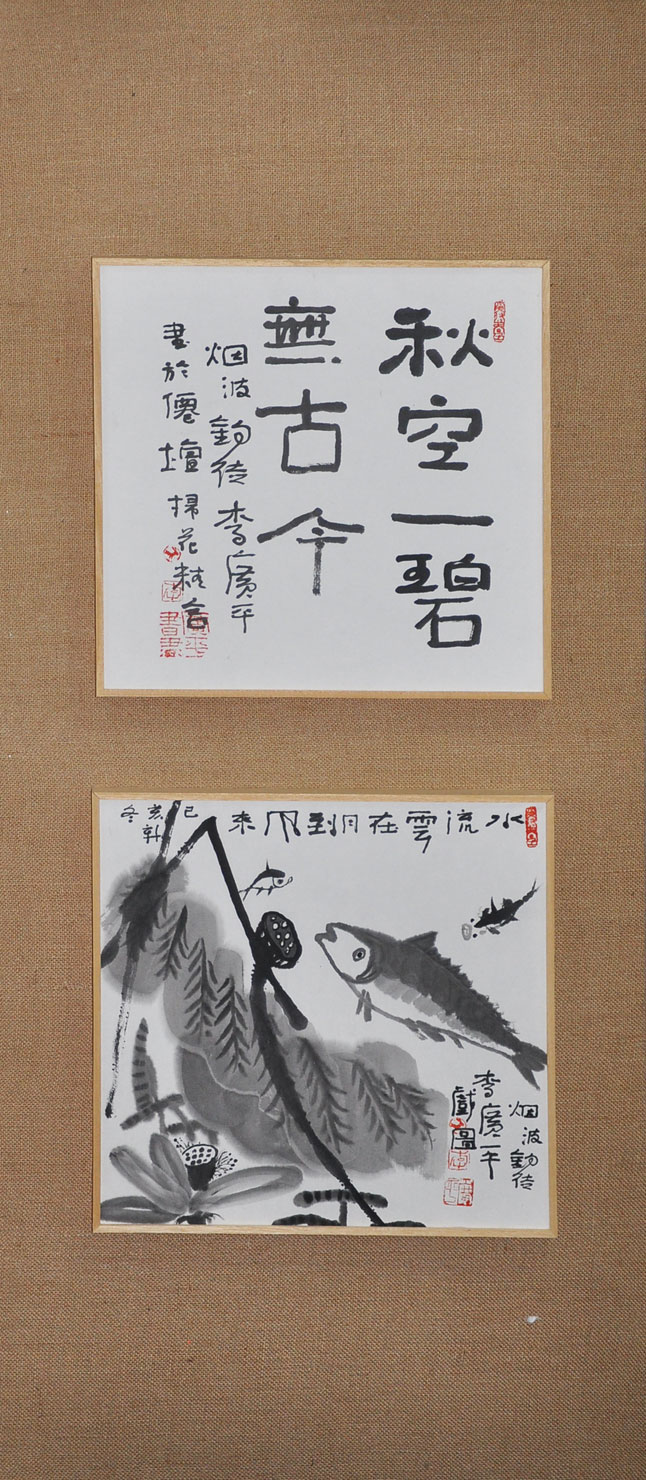 秋空一碧
無古今
烟波釣徒李廣平
書於僊壇掃花精舍
水流雲在月到風來
己亥冬
烟波釣徒
李廣平
戲